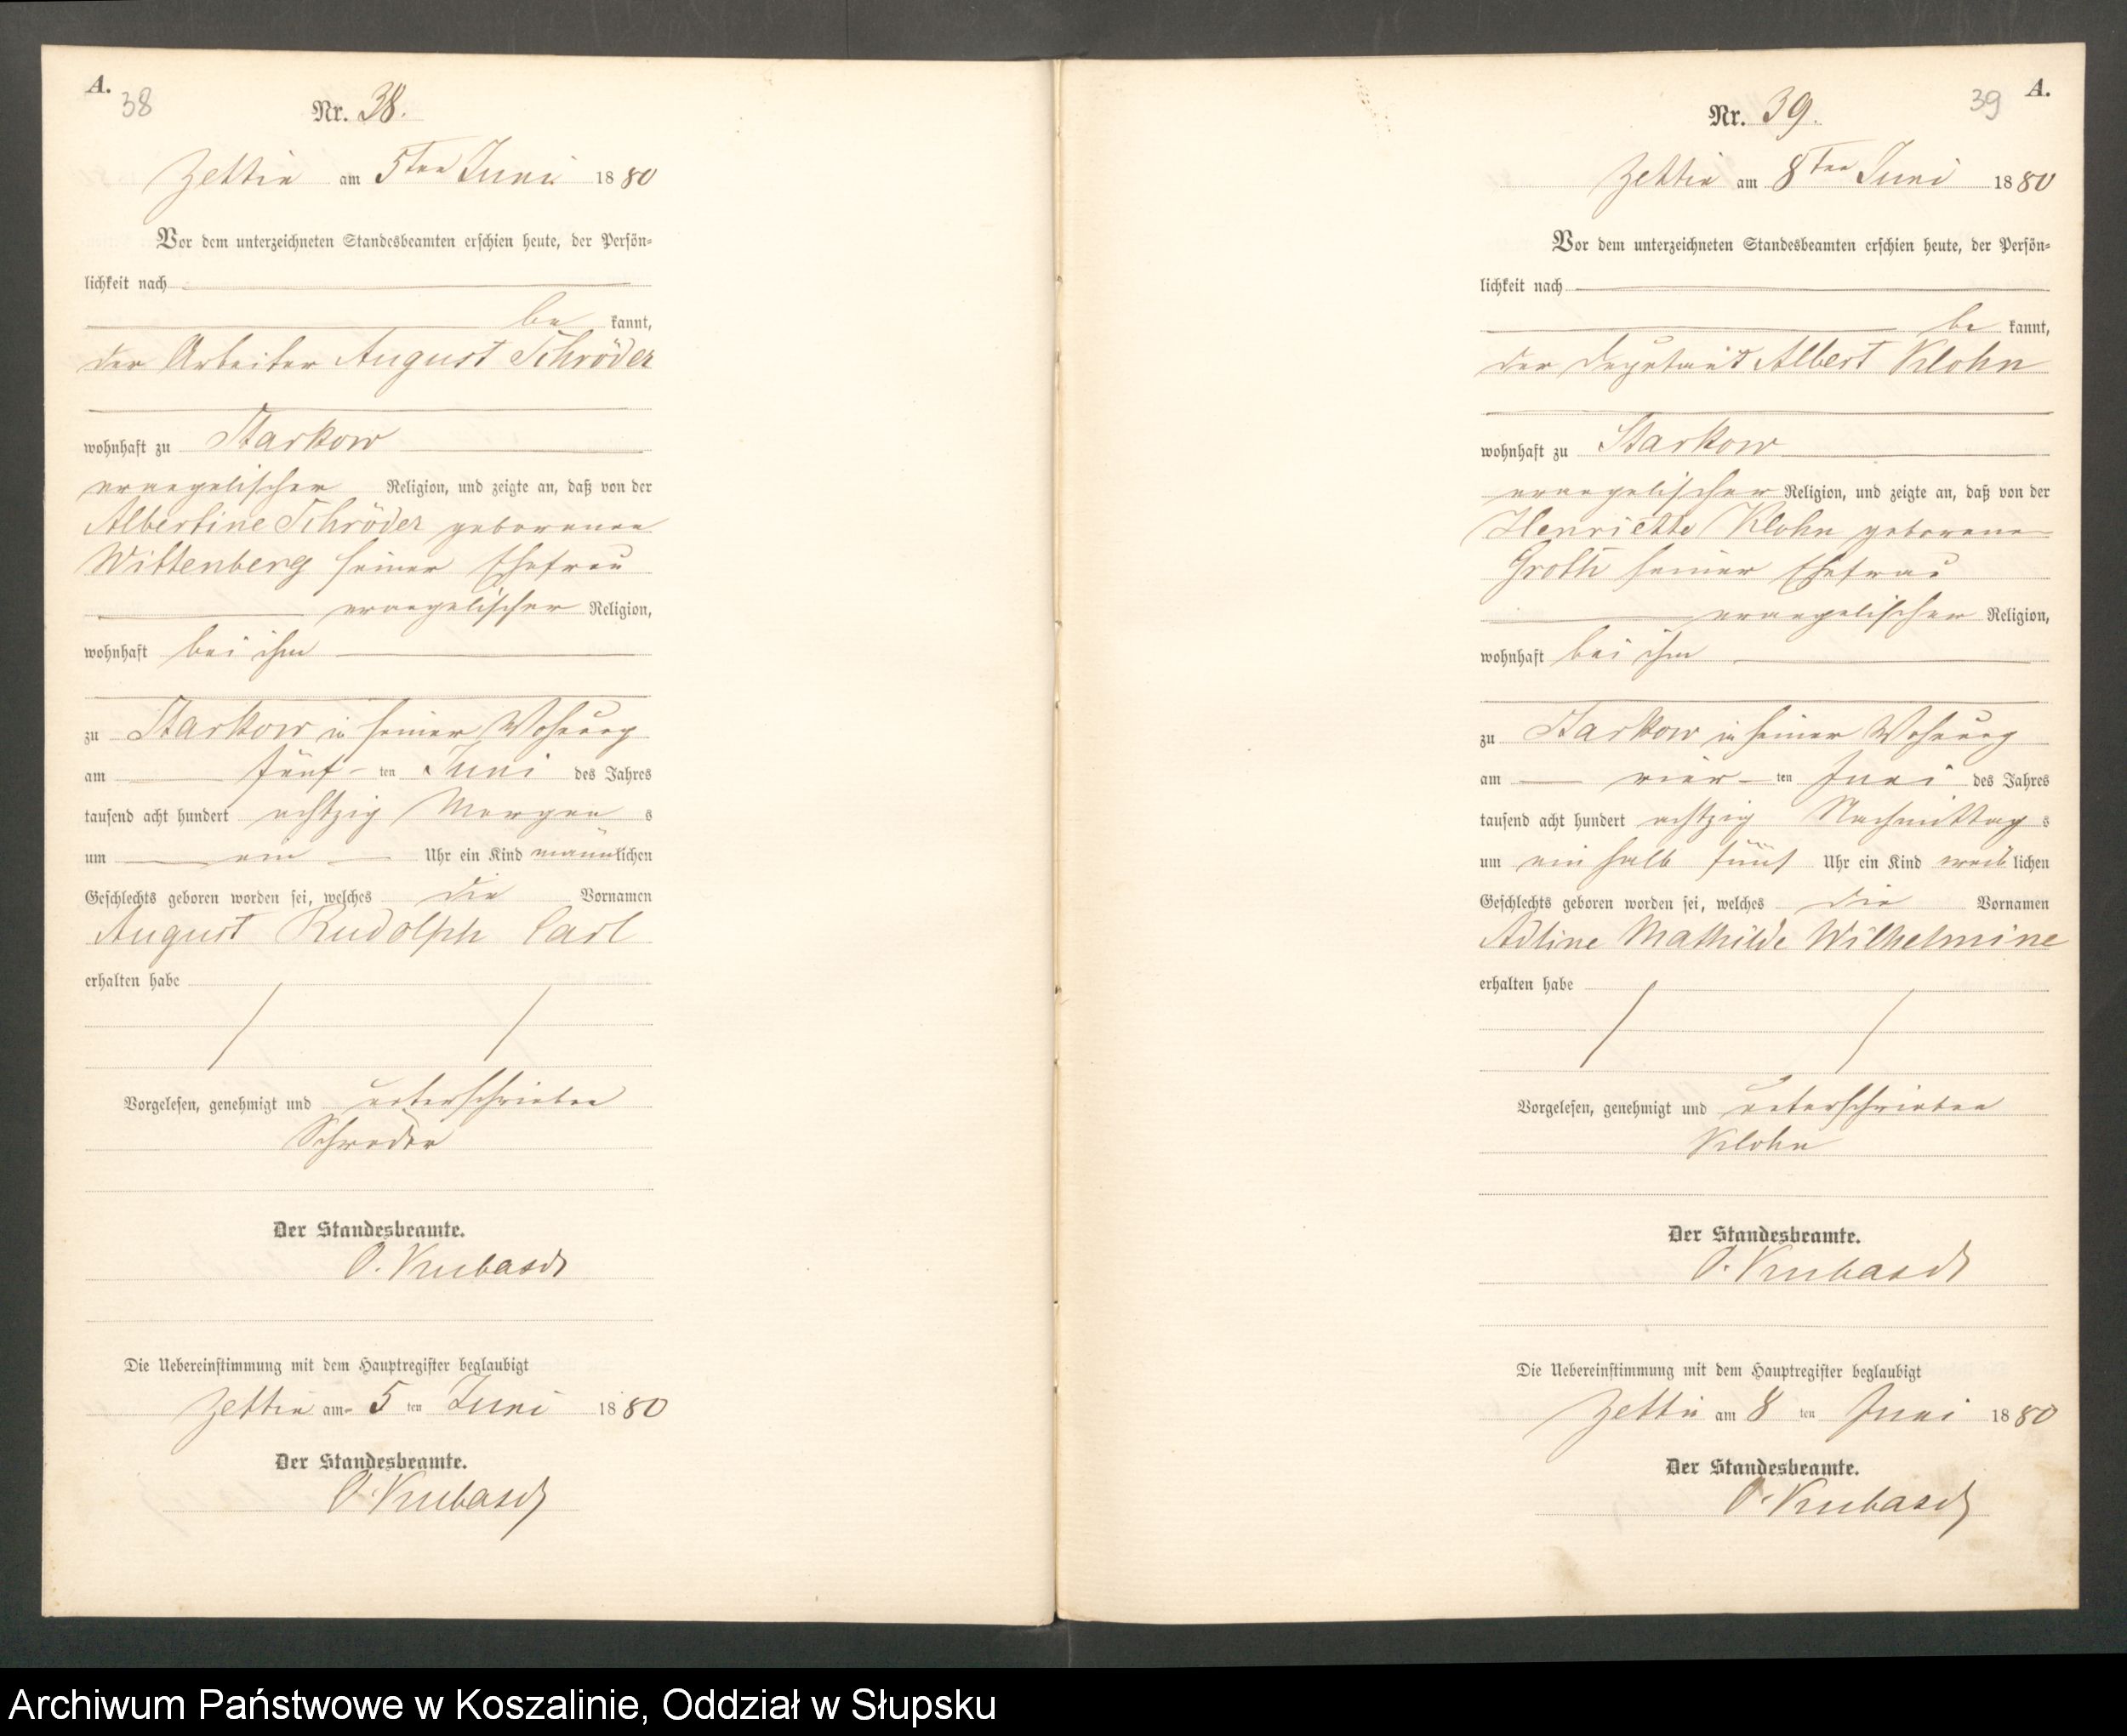 A.
38
Nr. 38.
Zettin am 5ten Juni 1880
Vor dem unterzeichneten Standesbeamten erschien heute, der Persön-
lichkeit nach
be kannt,
der Arbeiter August Schröder
wohnhaft zu Starkow
evangelischer Religion, und zeigte an, daß von der
Albertine Schröder geborenen
Wittenberg seiner Ehefrau
evangelischer Religion,
wohnhaft bei ihm
zu Starkow in seiner Wohnung
am fünf- ten Juni des Jahres
tausend acht hundert achtzig Morgen s
um ein Uhr ein Kind männlichen
Geschlechts geboren worden sei, welches die Vornamen
August Rudolph Carl
erhalten habe
Vorgelesen, genehmigt und unterschrieben
Schröder
Der Standesbeamte.
O. Kubasch
Die Uebereinstimmung mit dem Hauptregister beglaubigt
Zettin am 5 ten Juni 1880
Der Standesbeamte.
O. Kubasch
A.
39
Nr. 39.
Zettin am 8ten Juni 1880
Vor dem unterzeichneten Standesbeamten erschien heute, der Persön-
lichkeit nach
be kannt,
der Deputant Albert Klohn
wohnhaft zu Starkow
evangelischer Religion, und zeigte an, daß von der
Henriette Klohn geborene
Groth seiner Ehefrau
evangelischer Religion,
wohnhaft bei ihm
zu Starkow in seiner Wohnung
am vier- ten Juni des Jahres
tausend acht hundert achtzig Nachmittag s
um ein halb fünf Uhr ein Kind weib lichen
Geschlechts geboren worden sei, welches die Vornamen
Adline Mathilde Wilhelmine
erhalten habe
Vorgelesen, genehmigt und unterschrieben
Klohn
Der Standesbeamte.
O. Kubasch
Die Uebereinstimmung mit dem Hauptregister beglaubigt
Zettin am 8 ten Juni 1880
Der Standesbeamte.
O. Kubasch
Archiwum Państwowe w Koszalinie, Oddział w Słupsku